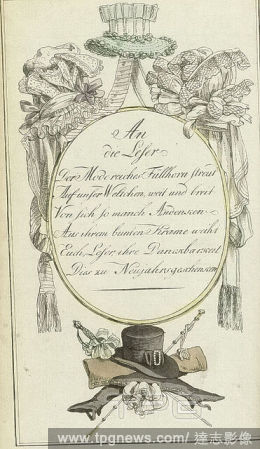 An
die Leser
Der Mode reiches Füllhorn streut
Auf unser Weltchen, weit und breit
Von sich so manch Andenken
Aus ihrem bunten Krame weiht
Euch, Leser, ihre Dankbarkeit
Dies zu Neujahrsgeschenken
www.tpgnews.com/ 達志影像